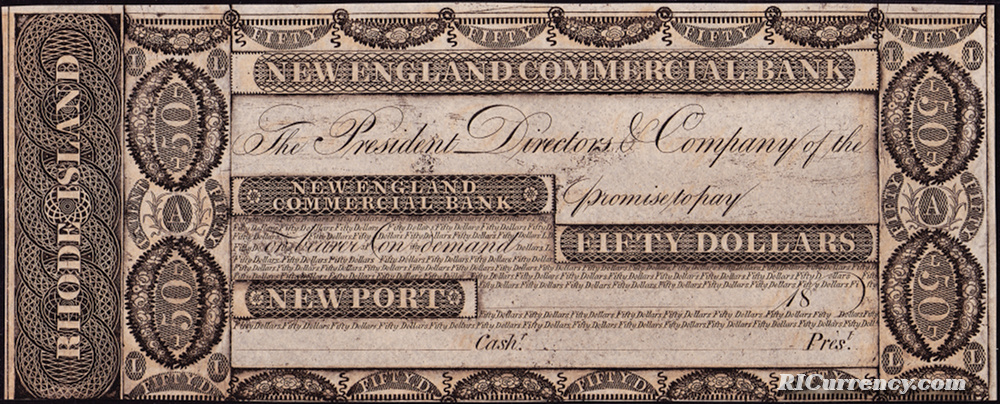 RHODE ISLAND
FIFTY D FIFTY D FIFTY D FIFTY D FIFTY D FIFTY D
L L L L
50 50
NEW ENGLAND COMMERCIAL BANK
The President Directors & Company of the
promise to pay
NEW ENGLAND
COMMERCIAL BANK
A A
Fifty Dollars Fifty Dollars Fifty Dollars Fifty Dollars Fifty Dollars
or bearer on demand
FIFTY DOLLARS
NEWPORT
18
Fifty Dollars Fifty Dollars Fifty Dollars Fifty Dollars Fifty Dollars
50 50
Cash.r Pres.t
L L L L
FIFTY D FIFTY D FIFTY D
RICurrency.com